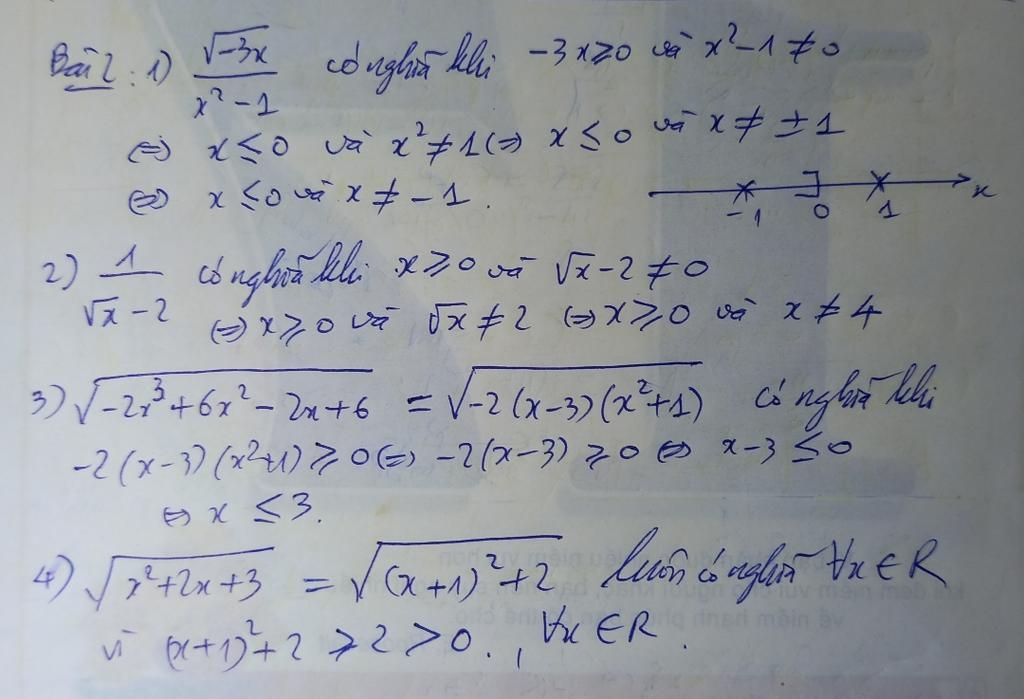 Bài 2: 1) √(-3x) / (x² - 1) có nghĩa khi -3x ≥ 0 và x² - 1 ≠ 0
⇔ x ≤ 0 và x² ≠ 1 ⇔ x ≤ 0 và x ≠ ±1
⇔ x ≤ 0 và x ≠ -1.
-1 0 1 x
2) 1 / (√x - 2) có nghĩa khi x ≥ 0 và √x - 2 ≠ 0
⇔ x ≥ 0 và √x ≠ 2 ⇔ x ≥ 0 và x ≠ 4
3) √(-2x³ + 6x² - 2x + 6) = √(-2(x-3)(x²+1)) có nghĩa khi
-2(x-3)(x²+1) ≥ 0 ⇔ -2(x-3) ≥ 0 ⇔ x-3 ≤ 0
⇔ x ≤ 3.
4) √(x² + 2x + 3) = √((x+1)² + 2) luôn có nghĩa ∀x ∈ R
vì (x+1)² + 2 ≥ 2 > 0., ∀x ∈ R.